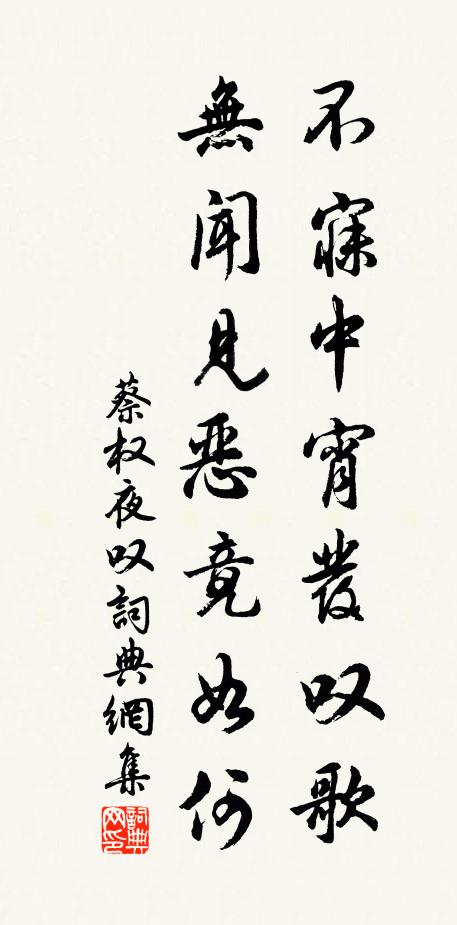 不寐中宵發叹歌
無聞見惡竟如何
蔡权夜叹詞典網集
詞典网印